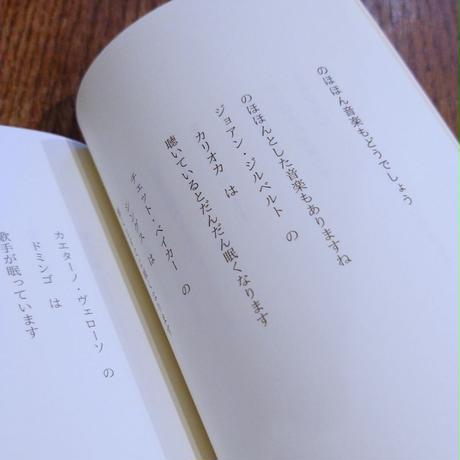 のほほん音楽もどうでしょう
のほほんとした音楽もありますね
ジョアン・ジルベルト の
カリオカ は
聴いているとだんだん眠くなります
チェット・ベイカー の
シングス は
カエターノ・ヴェローゾ の
ドミンゴ は
歌手が眠っています